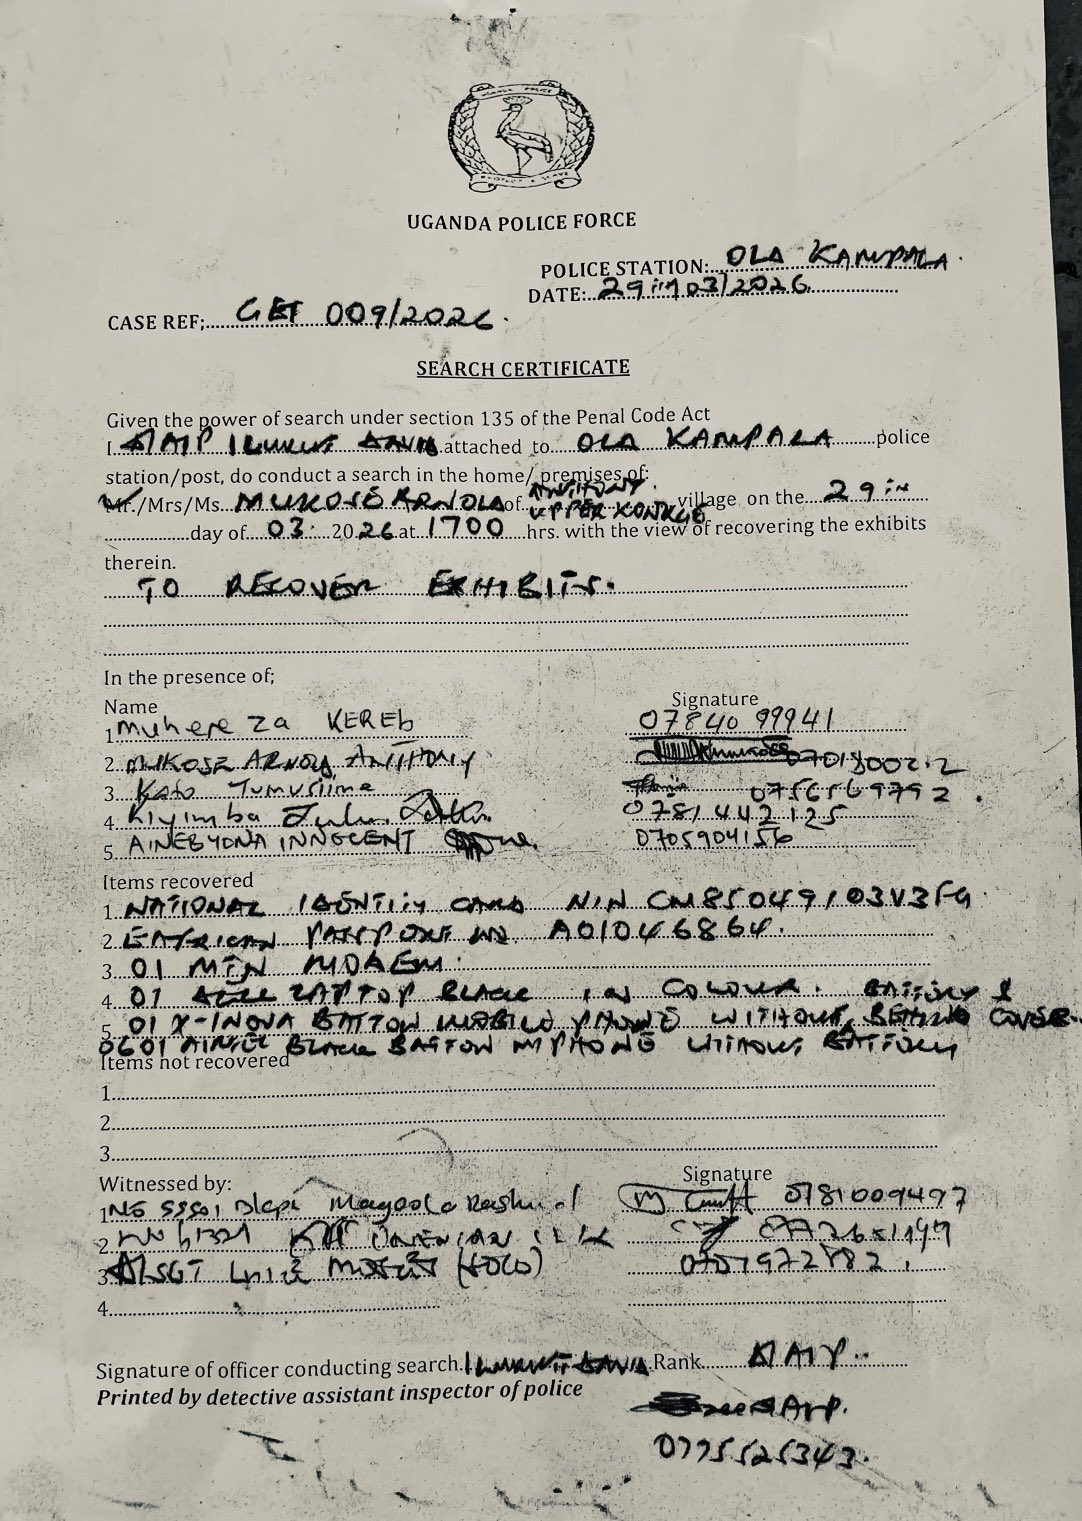 UGANDA POLICE FORCE
POLICE STATION: OLA KAMPALA.
DATE: 29 03/2026
CASE REF; 009/2026.
SEARCH CERTIFICATE
Given the power of search under section 135 of the Penal Code Act
I attached to OLA KAMPALA police
station/post, do conduct a search in the home/ premises of:
Mr./Mrs/Ms. of village on the 29
day of 03 2026 at 1700 hrs. with the view of recovering the exhibits
therein.
TO RECOVER EXHIBITS.
In the presence of;
Name Signature
1 muhereza KEREB 0784099941
2 MUKOSE ARNOLD ANTHONY
3 Kato Tumusiime 0756569792.
4 Kiyimba 0781442125
5 AINEBYONA INNOCENT 0705904156
Items recovered
1. NATIONAL IDENTITY CARD NIN
2 PASSPORT NO A01046864.
3 01 MTN
4 01 LAPTOP BLACK IN COLOUR. BATTERY &
5 01 X-INOVA BATTON MOBILE PHONE WITHOUT BEHIND COVER
0601 AIRTEL BLACK BATTON PHONE WITHOUT BATTERY
Items not recovered
1.
2.
3.
Witnessed by: Signature
1 Magoola Rashid 0781009497
2
3
4.
Signature of officer conducting search. Rank AIP
Printed by detective assistant inspector of police
AIP.
0775525343.